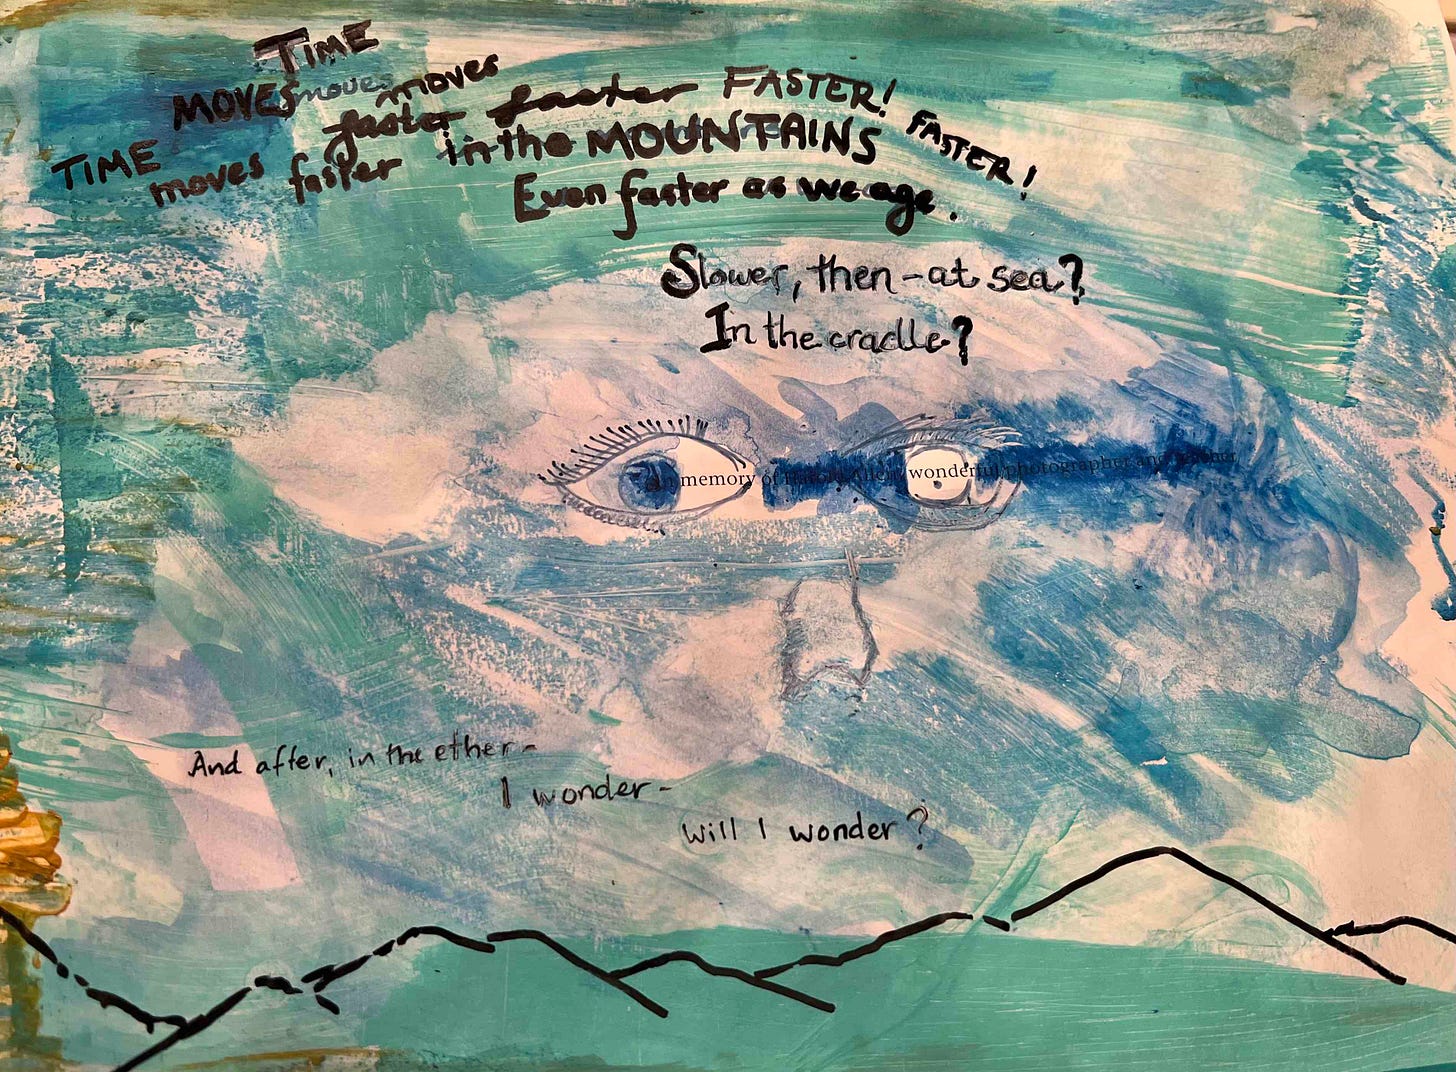 TIME
MOVES moves moves
faster faster FASTER! FASTER!
TIME moves faster in the MOUNTAINS
Even faster as we age.
Slower, then – at sea?
In the cradle?
In memory of Harold Allen, wonderful photographer and teacher
And after, in the ether –
I wonder –
Will I wonder?